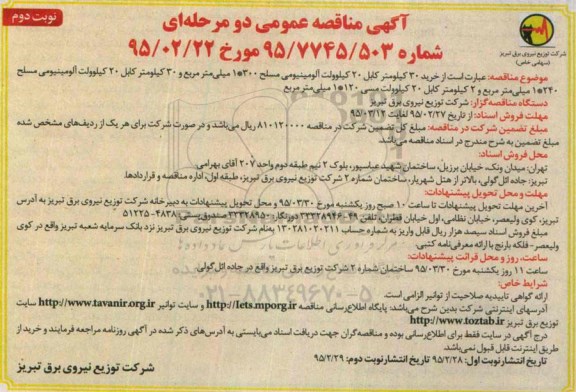 نوبت دوم
آگهی مناقصه عمومی دو مرحله‌ای
شماره ۹۵/۷۷۴۵/۵۰۳ مورخ ۹۵/۰۲/۲۲
شرکت توزیع نیروی برق تبریز
(سهامی خاص)
موضوع مناقصه: عبارت است از خرید ۳۰ کیلومتر کابل ۲۰ کیلوولت آلومینیومی مسلح ۳۰۰*۱ میلی‌متر مربع و ۳۰ کیلومتر کابل ۲۰ کیلوولت آلومینیومی مسلح
۲۴۰*۱ میلی‌متر مربع و ۲ کیلومتر کابل ۲۰ کیلوولت مسی ۱۲۰*۱ میلی‌متر مربع
دستگاه مناقصه‌گزار: شرکت توزیع نیروی برق تبریز
مهلت فروش اسناد: از تاریخ ۹۵/۰۲/۲۷ لغایت ۹۵/۰۳/۱۲
مبلغ تضمین شرکت در مناقصه: مبلغ کل تضمین شرکت در مناقصه ۸۱۰۱۲۰۰۰۰ ریال می‌باشد و در صورت شرکت برای هر یک از ردیف‌های مشخص شده
مبلغ تضمین به شرح مندرج در اسناد مناقصه می‌باشد.
محل فروش اسناد:
تهران: میدان ونک، خیابان برزیل، ساختمان شهید عباسپور، بلوک ۲ نیم طبقه دوم واحد ۲۰۷ آقای بهرامی.
تبریز: جاده ائل‌گولی، بالاتر از هتل شهریار، ساختمان شماره ۲ شرکت توزیع نیروی برق تبریز، طبقه اول، اداره مناقصه و قراردادها.
مهلت و محل تحویل پیشنهادات:
آخرین مهلت تحویل پیشنهادات تا ساعت ۱۰ صبح روز یکشنبه مورخ ۹۵/۰۳/۳۰ و محل تحویل پیشنهادات به دبیرخانه شرکت توزیع نیروی برق تبریز به آدرس
تبریز، کوی ولیعصر، خیابان نظامی، اول خیابان قطران، تلفن ۴۹-۳۳۳۲۸۹۴۶ دورنگار ۳۳۳۲۸۹۵۰ صندوق پستی ۴۸۳۸-۵۱۲۲۵
مبلغ فروش اسناد سیصد هزار ریال قابل واریز به شماره حساب ۱۳۰۲۸۱۰۲۰۲۱۱ به‌نام شرکت توزیع نیروی برق تبریز نزد بانک سرمایه شعبه تبریز واقع در کوی
ولیعصر- فلکه بارنج با ارائه معرفی‌نامه کتبی.
ساعت، روز و محل قرائت پیشنهادات:
ساعت ۱۱ روز یکشنبه مورخ ۹۵/۰۳/۳۰ ساختمان شماره ۲ شرکت توزیع برق تبریز واقع در جاده ائل‌گولی
۰۲۱-۸۸۳۴۹۶۷۰-۵
شرایط خاص:
ارائه گواهی تاییدیه صلاحیت از توانیر الزامی است.
آدرسهای اینترنتی شرکت بدین شرح می‌باشد: پایگاه اطلاع‌رسانی مناقصه http://iets.mporg.ir و سایت توانیر http://www.tavanir.org.ir سایت
توزیع برق تبریز http://www.toztab.ir
درج آگهی در سایت فقط برای اطلاع‌رسانی بوده و مناقصه‌گران جهت دریافت اسناد می‌بایستی به آدرس‌های ذکر شده در آگهی روزنامه مراجعه فرمایند و خرید از
طریق اینترنت قابل قبول نمی‌باشد.
تاریخ انتشار نوبت اول: ۹۵/۲/۲۸ تاریخ انتشار نوبت دوم: ۹۵/۲/۲۹
شرکت توزیع نیروی برق تبریز